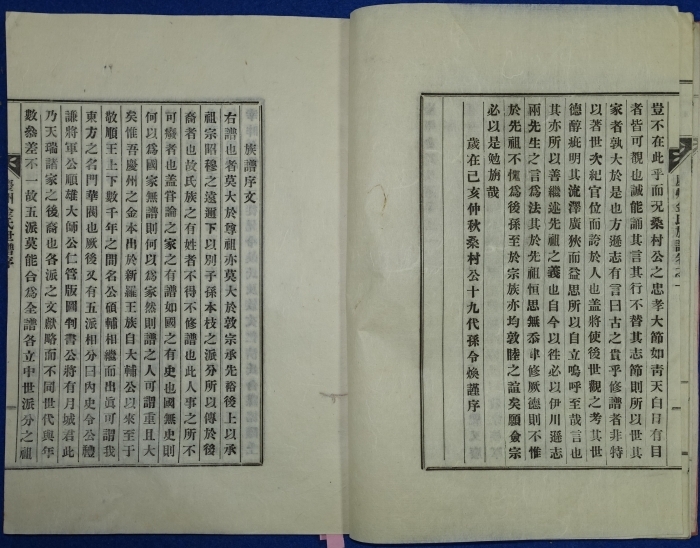 豈不在此乎而況桑村公之忠孝大節如靑天白日有目
者皆可覩也誠能誦其言其行不替其志節則所以世其
家者孰大於是也方遜志有言曰古之貴乎修譜者非特
以著世次紀官位而誇於人也盖將使後世觀之考其世
德醇疵明其流澤廣狹而益思所以自立嗚呼至哉言也
其亦所以善繼述先祖之義也自今以徃必以伊川遜志
兩先生之言爲法其於先祖恒思無忝聿修厥德則不惟
於先祖不愧爲後孫至於宗族亦均敦睦之誼矣願僉宗
必以是勉旃哉
歲在己亥仲秋桑村公十九代孫令煥謹序
慶州金氏族譜卷之一
族譜序文
右譜也者莫大於尊祖亦莫大於敦宗承先裕後上以承
祖宗昭穆之遠邇下以別子孫本枝之派分所以傳於後
裔者也故氏族之有姓者不得不修譜也此人事之所不
可廢者也盖甞論之家之有譜如國之有史也國無史則
何以爲國家無譜則何以爲家然則譜之人可謂重且大
矣惟吾慶州之金本出於新羅王族自大輔公以來至于
敬順王上下數千年之間名公碩輔相繼而出眞可謂我
東方之名門華閥也厥後又有五派相分曰內史令公禮
謙將軍公順雄大師公仁管版圖判書公將有月城君此
乃天瑞諸家之後裔也各派之文獻略而不同世代與年
數叅差不一故五派莫能合爲全譜各立中世派分之祖
慶州金氏世譜序